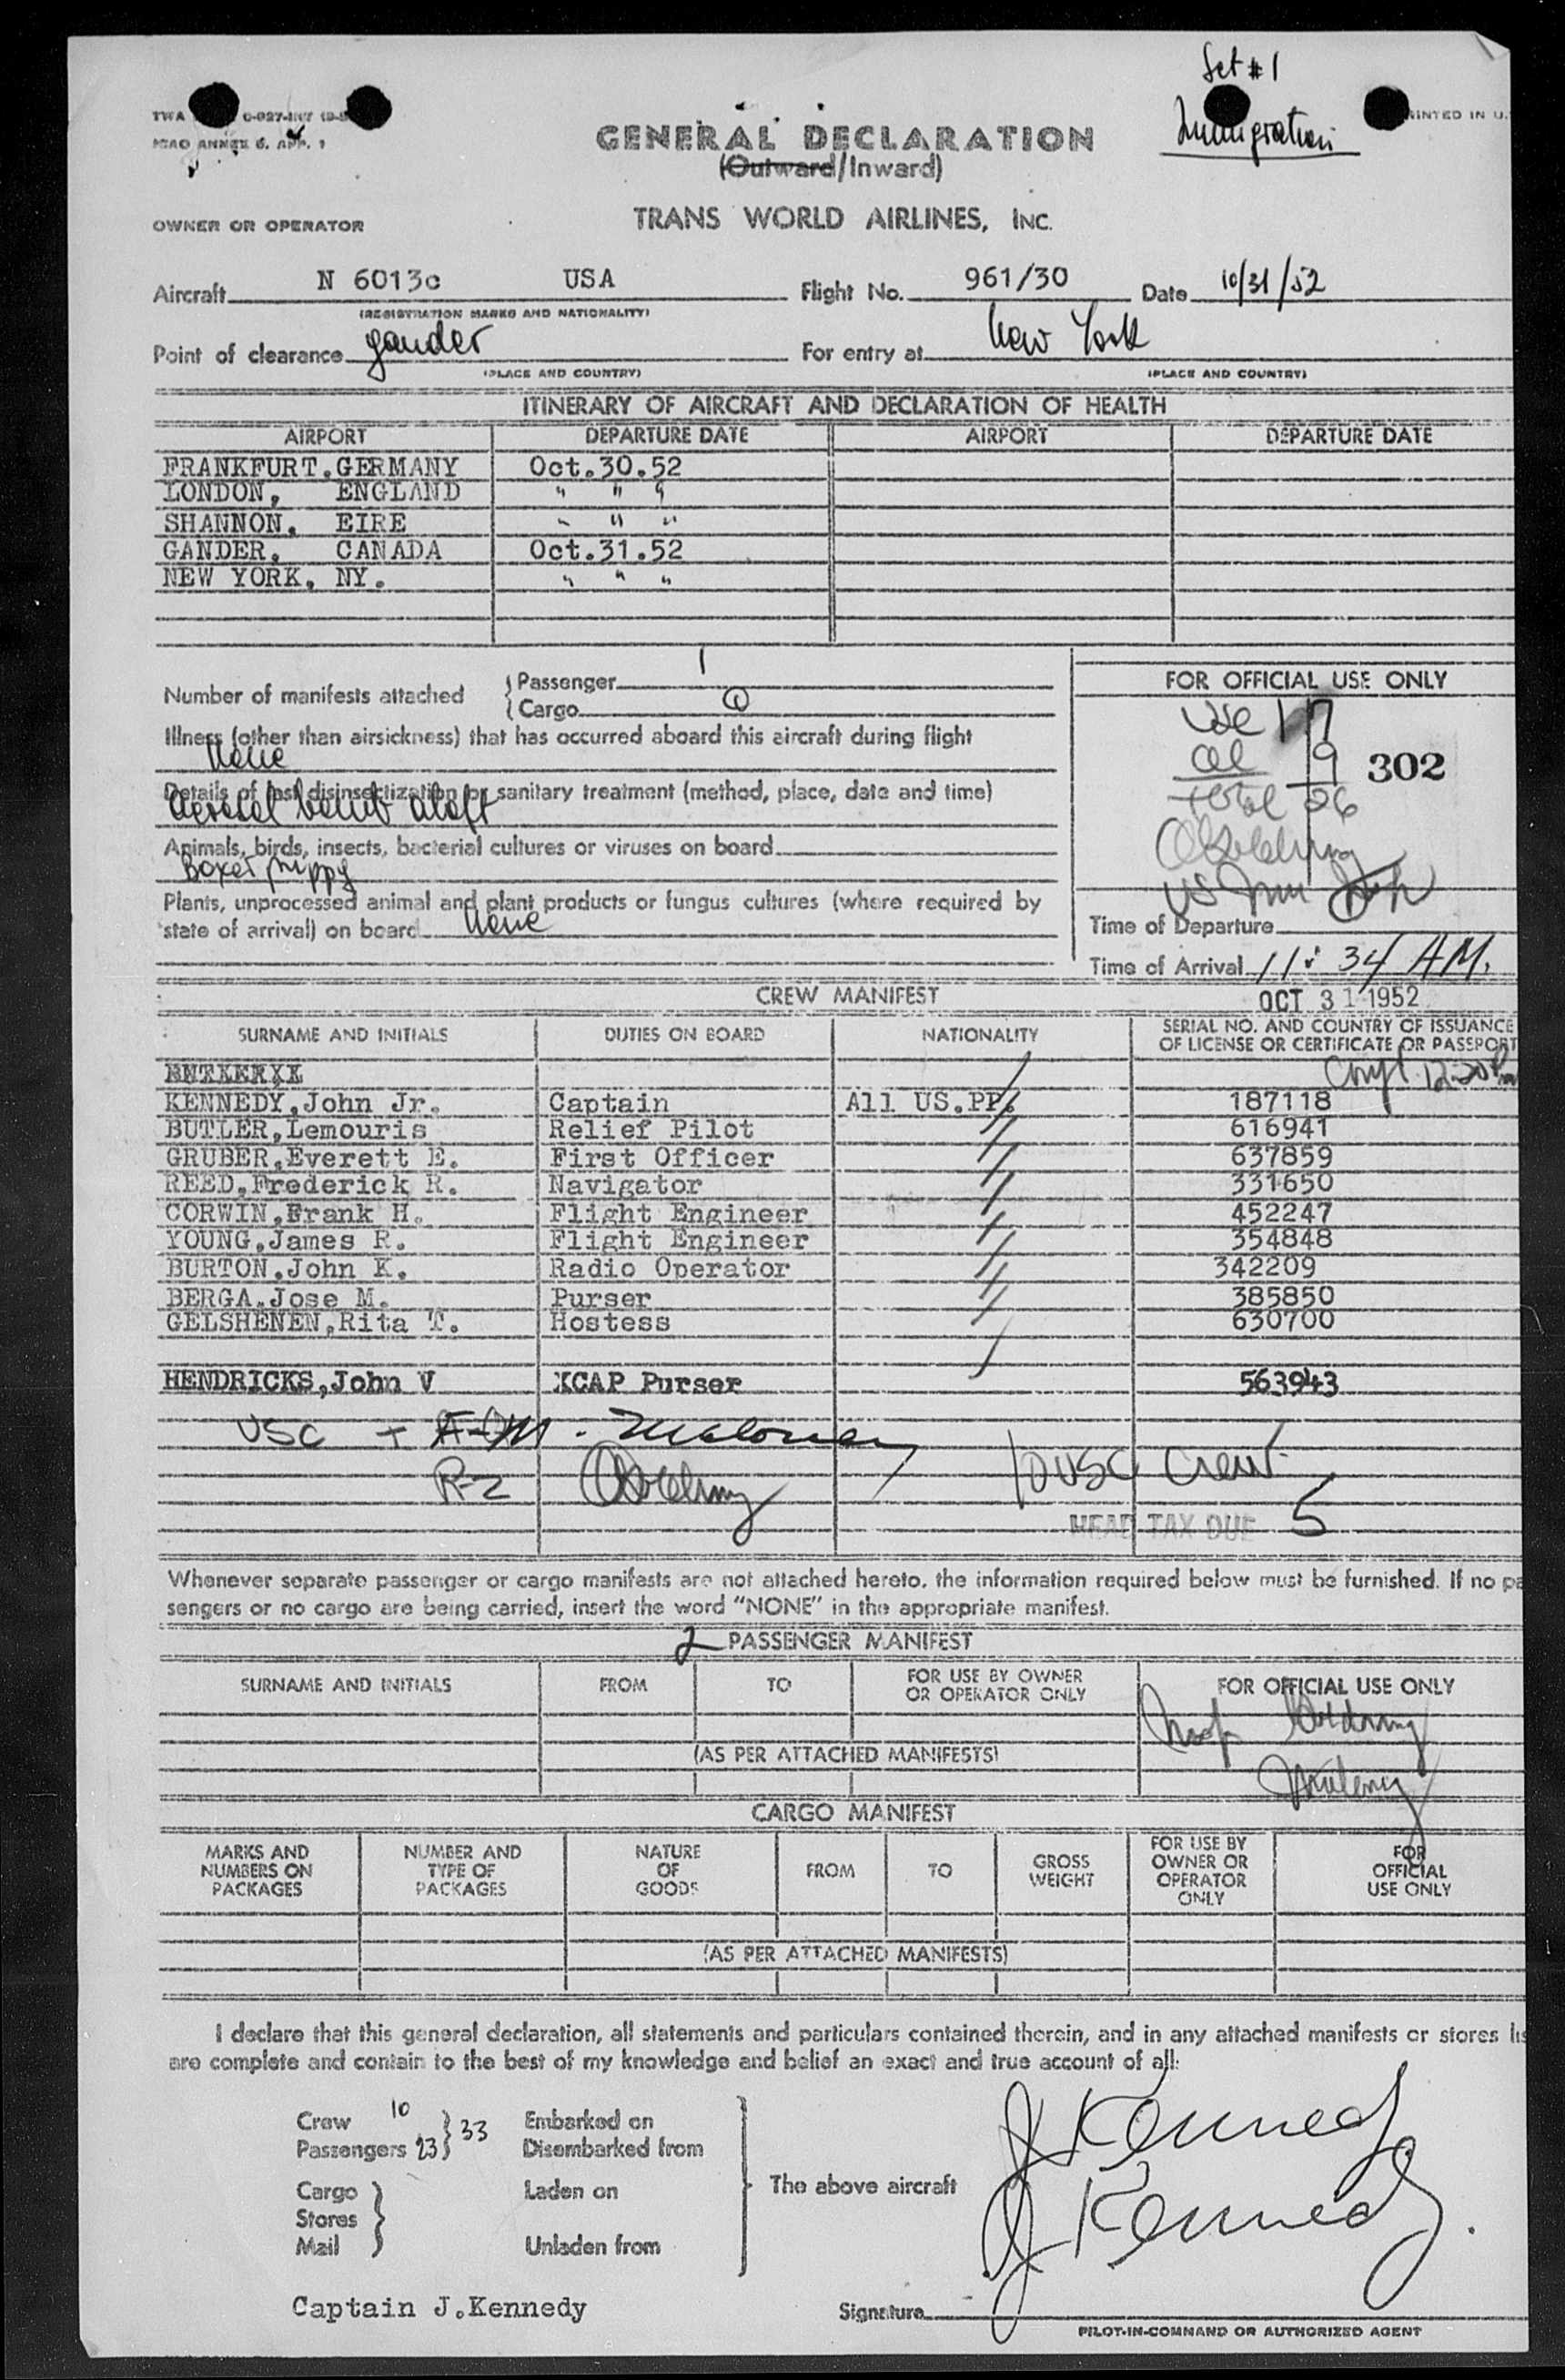 Set #1
Immigration
TWA 0-927-INT
ICAO ANNEX 6. APP. 1
PRINTED IN U.
GENERAL DECLARATION
(Outward/Inward)
OWNER OR OPERATOR
TRANS WORLD AIRLINES, INC.
Aircraft N 6013c USA Flight No. 961/30 Date 10/31/52
(REGISTRATION MARKS AND NATIONALITY)
Point of clearance gander For entry at New York
(PLACE AND COUNTRY) (PLACE AND COUNTRY)
ITINERARY OF AIRCRAFT AND DECLARATION OF HEALTH
AIRPORT DEPARTURE DATE AIRPORT DEPARTURE DATE
FRANKFURT,GERMANY Oct.30.52
LONDON, ENGLAND " " "
SHANNON, EIRE " " "
GANDER, CANADA Oct.31.52
NEW YORK, NY. " " "
Number of manifests attached
Passenger 1
Cargo 0
Illness (other than airsickness) that has occurred aboard this aircraft during flight
None
Details of last disinsectization or sanitary treatment (method, place, date and time)
aerosol bomb aloft
Animals, birds, insects, bacterial cultures or viruses on board
Boxer puppy
Plants, unprocessed animal and plant products or fungus cultures (where required by
state of arrival) on board None
FOR OFFICIAL USE ONLY
USC 17
al 9 302
total 26
US Imm
Time of Departure
Time of Arrival 11:34 AM.
CREW MANIFEST
OCT 31 1952
SURNAME AND INITIALS DUTIES ON BOARD NATIONALITY SERIAL NO. AND COUNTRY OF ISSUANCE
OF LICENSE OR CERTIFICATE OR PASSPORT
KENNEDY,John Jr. Captain All US.PP. 187118
BUTLER,Lemouris Relief Pilot 616941
GRUBER,Everett E. First Officer 637859
REED,Frederick R. Navigator 331650
CORWIN,Frank H. Flight Engineer 452247
YOUNG,James R. Flight Engineer 354848
BURTON,John K. Radio Operator 342209
BERGA,Jose M. Purser 385850
GELSHENEN,Rita T. Hostess 630700
HENDRICKS,John V XCAP Purser 563943
USC
R-2
10 USC Crew
HEAD TAX DUE 5
Whenever separate passenger or cargo manifests are not attached hereto, the information required below must be furnished. If no pa
sengers or no cargo are being carried, insert the word "NONE" in the appropriate manifest.
2 PASSENGER MANIFEST
SURNAME AND INITIALS FROM TO FOR USE BY OWNER
OR OPERATOR ONLY
FOR OFFICIAL USE ONLY
(AS PER ATTACHED MANIFESTS)
CARGO MANIFEST
MARKS AND
NUMBERS ON
PACKAGES
NUMBER AND
TYPE OF
PACKAGES
NATURE
OF
GOODS
FROM
TO
GROSS
WEIGHT
FOR USE BY
OWNER OR
OPERATOR
ONLY
FOR
OFFICIAL
USE ONLY
(AS PER ATTACHED MANIFESTS)
I declare that this general declaration, all statements and particulars contained therein, and in any attached manifests or stores lis
are complete and contain to the best of my knowledge and belief an exact and true account of all:
Crew 10 Embarked on
Passengers 23 33 Disembarked from
Cargo Laden on
Stores
Mail Unladen from
The above aircraft
J Kennedy
J Kennedy
Captain J.Kennedy
Signature
PILOT-IN-COMMAND OR AUTHORIZED AGENT